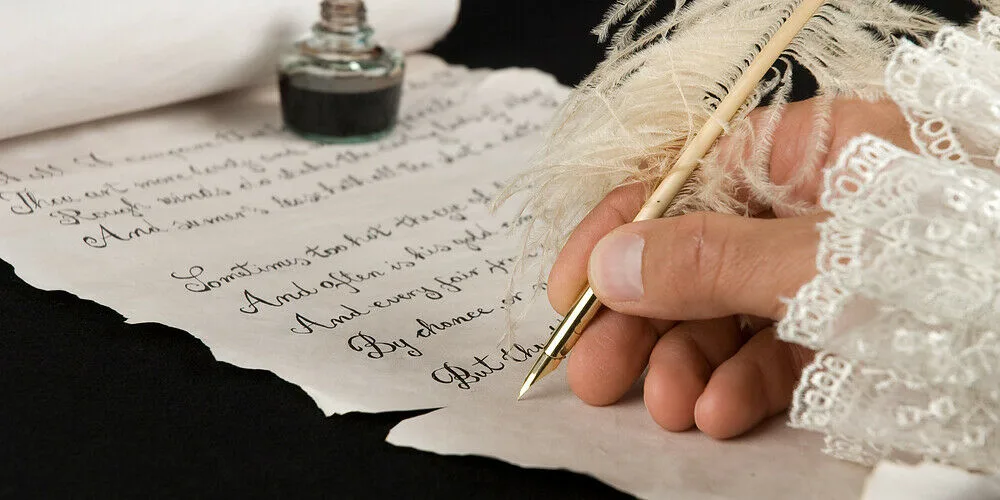 I compare
Thou art more lovely and
Rough winds do shake the
And summer's lease hath all too short a
Sometimes too hot the eye of
And often is his gold
And every fair
By chance or
But thy